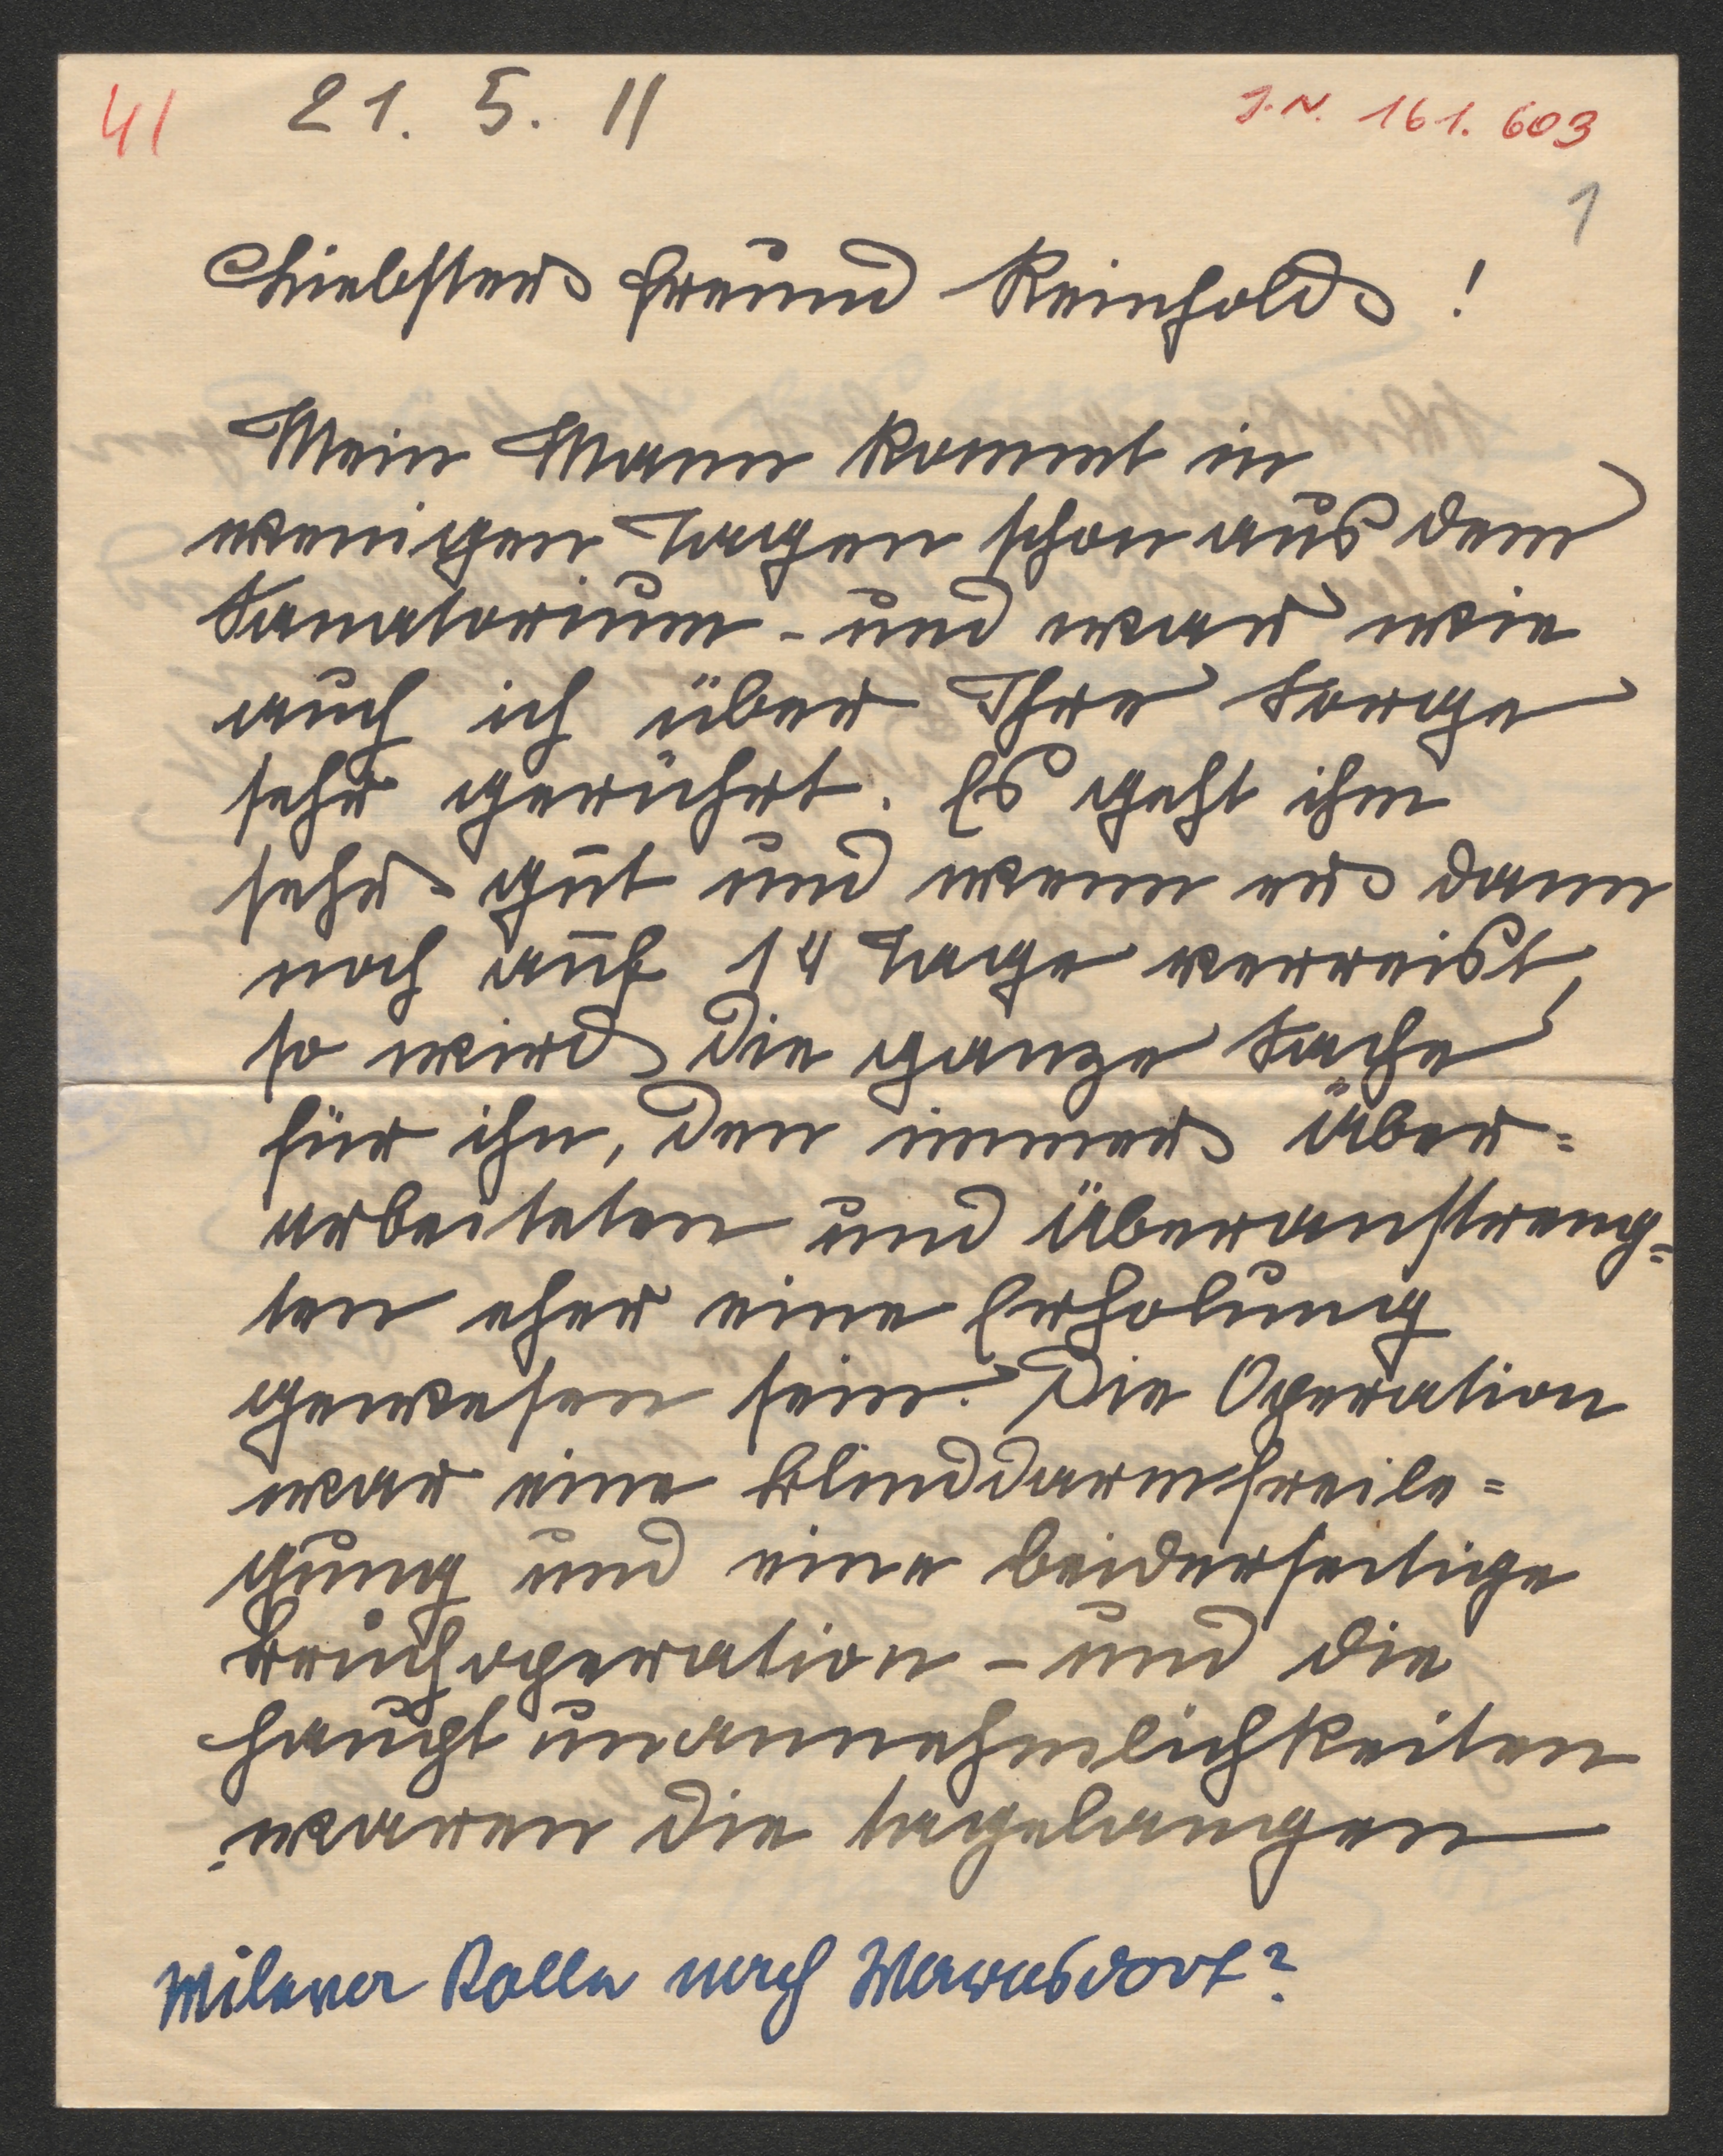 41 21. 5. 11 J.N. 161.603
1
Liebster Freund Reinhold!
Mein Mann kommt in
wenigen Tagen schon aus dem
Sanatorium - und war wie
auch ich über Ihre Sorge
sehr gerührt. Es geht ihm
sehr gut und wenn er dann
noch auf 14 Tage verreist,
so wird die ganze Sache
für ihn, den immer über=
arbeiteten und überanstreng=
ten eher eine Erholung
gewesen sein. Die Operation
war eine Blinddarmfreile=
gung und eine beiderseitige
Bruchoperation - und die
Hauptunannehmlichkeiten
waren die tagelangen
Milaner Rolle nach Warnsdorf?